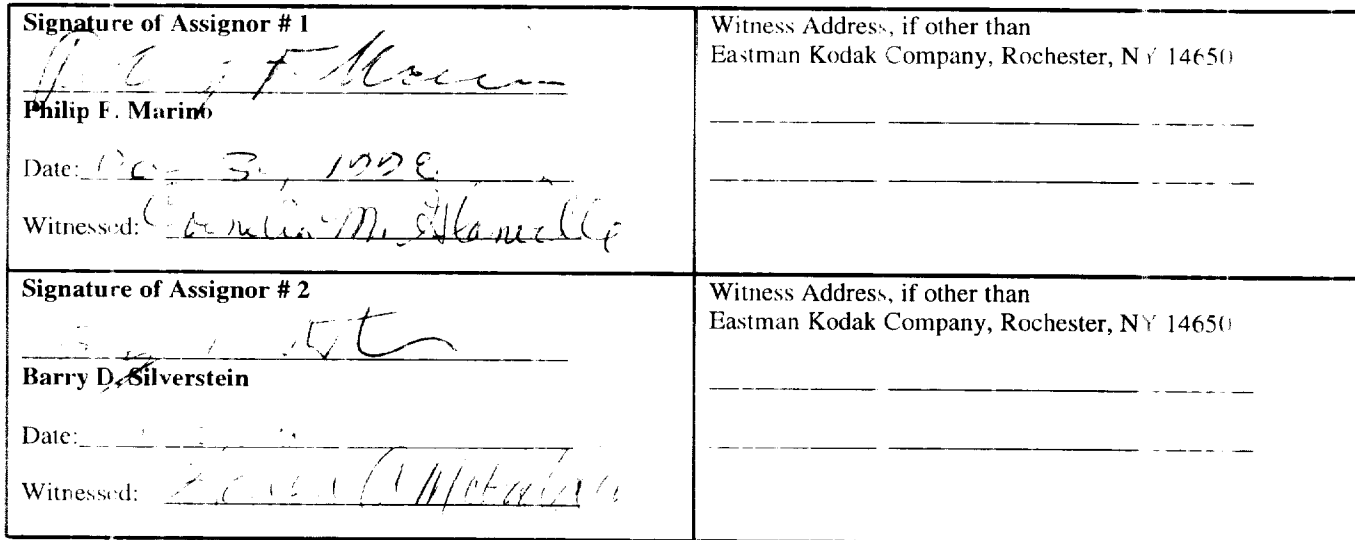 Signature of Assignor # 1
Philip F. Marino
Date:
Witnessed: M.
Witness Address, if other than
Eastman Kodak Company, Rochester, NY 14650
Signature of Assignor # 2
Barry D. Silverstein
Date:
Witnessed:
Witness Address, if other than
Eastman Kodak Company, Rochester, NY 14650